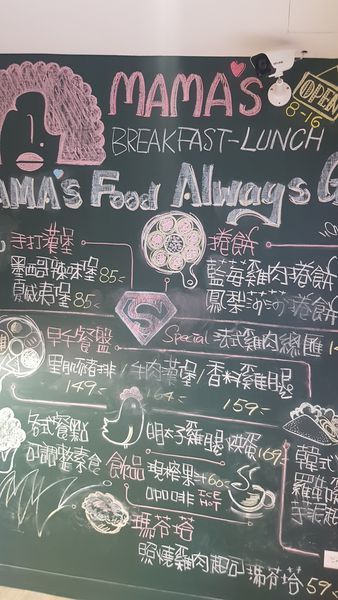 MAMA'S
OPEN
8-16
BREAKFAST-LUNCH
AMA's Food Always G
手打漢堡
墨西哥辣味堡 85
夏威夷堡 85
捲餅
藍莓雞肉捲餅
鳳梨莎莎捲餅
S
Special 法式雞肉總匯 1
早午餐盤
里肌豬排/牛肉漢堡/香料雞腿
149 164 159
各式餐點
可調整素食
明太子雞腿烘蛋 169
飲品 現榨果汁 60
咖啡 ICE HOT
韓式
瑪芬塔
照燒雞肉起司瑪芬塔 59